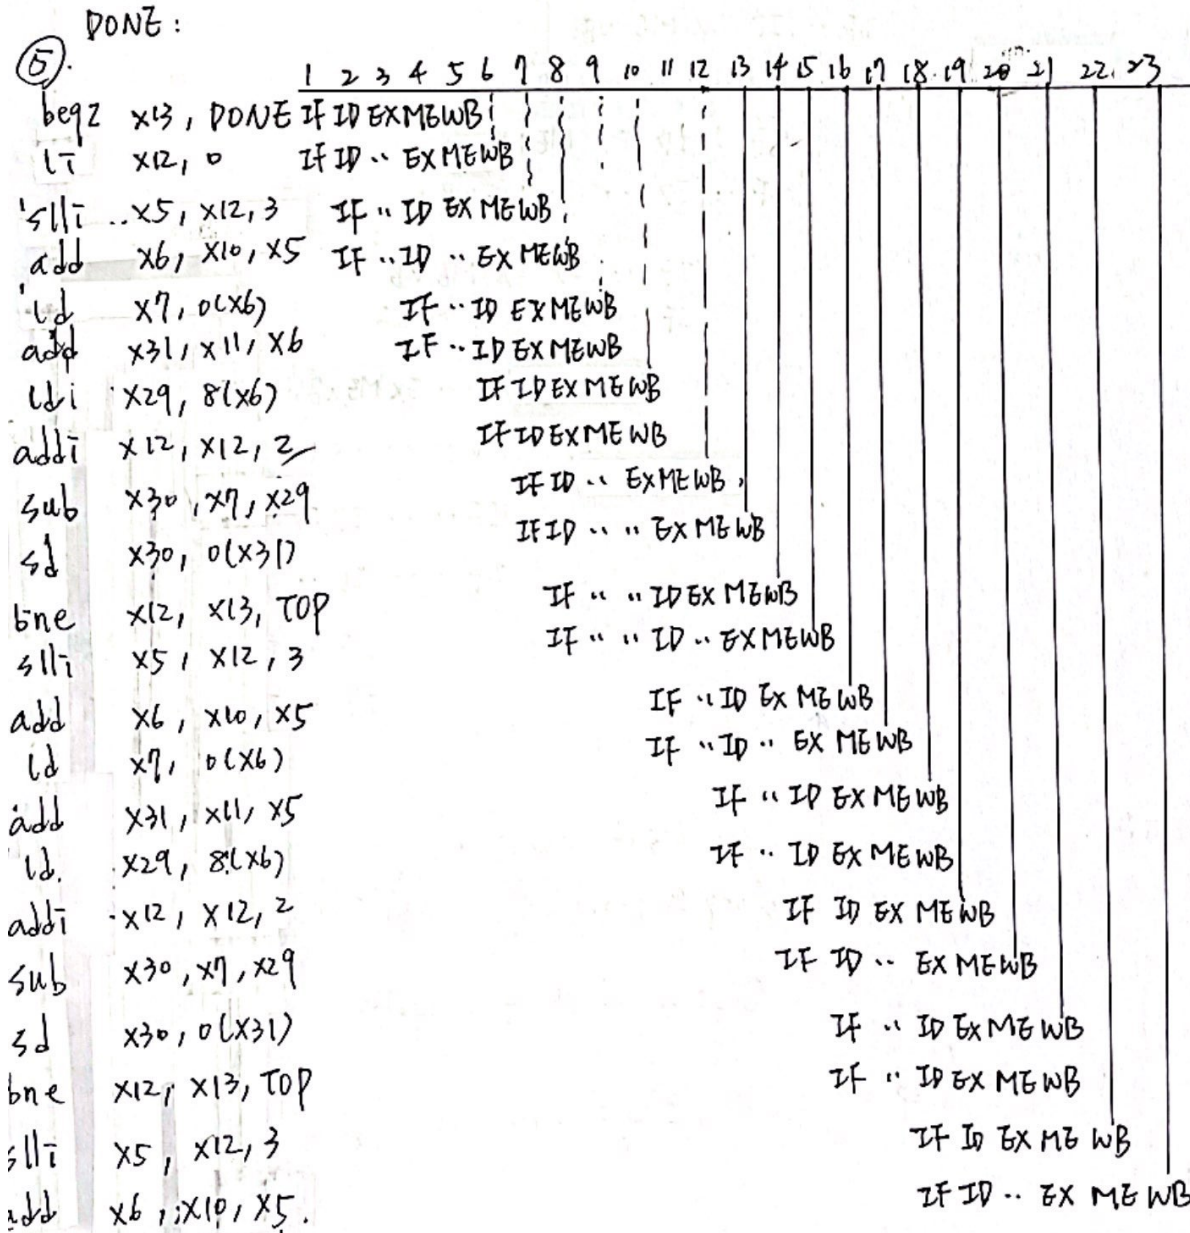 DONE :
⑤.
1 2 3 4 5 6 7 8 9 10 11 12 13 14 15 16 17 18 19 20 21 22 23
beqz x13, DONE IF ID EX ME WB
li x12, 0 IF ID ·· EX ME WB
slli x5, x12, 3 IF ·· ID EX ME WB
add x6, x10, x5 IF ·· ID ·· EX ME WB
ld x7, 0(x6) IF ·· ID EX ME WB
add x31, x11, x6 IF ·· ID EX ME WB
ldi x29, 8(x6) IF ID EX ME WB
addi x12, x12, 2 IF ID EX ME WB
sub x30, x7, x29 IF ID ·· EX ME WB
sd x30, 0(x31) IF ID ·· ·· EX ME WB
bne x12, x13, TOP IF ·· ·· ID EX ME WB
slli x5, x12, 3 IF ·· ·· ID ·· EX ME WB
add x6, x10, x5 IF ·· ID EX ME WB
ld x7, 0(x6) IF ·· ID ·· EX ME WB
add x31, x11, x5 IF ·· ID EX ME WB
ld. x29, 8(x6) IF ·· ID EX ME WB
addi x12, x12, 2 IF ID EX ME WB
sub x30, x7, x29 IF ID ·· EX ME WB
sd x30, 0(x31) IF ·· ID EX ME WB
bne x12, x13, TOP IF ·· ID EX ME WB
slli x5, x12, 3 IF ID EX ME WB
add x6, x10, x5. IF ID ·· EX ME WB